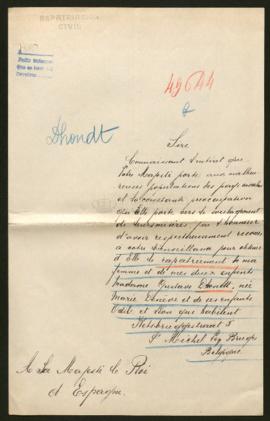 REPATRIACIÓN
CIVIL
49644
Dhondt
Sire
Connaissant l'intérêt que
Votre Majesté porte aux malheu-
reuses populations des pays envahis
et la constante préoccupation
qu'Elle porte vers le soulagement
de leurs misères j'ai l'honneur
d'avoir respectueusement recours
à votre bienveillance pour obtenir
d'Elle le rapatriement de ma
femme et de mes deux enfants
Madame Gustave Dhondt, née
Marie et de ses enfants
Odil et Léon que habitent
5
St Michel lez Bruges
Belgique
A Sa Majesté le Roi
d'Espagne.